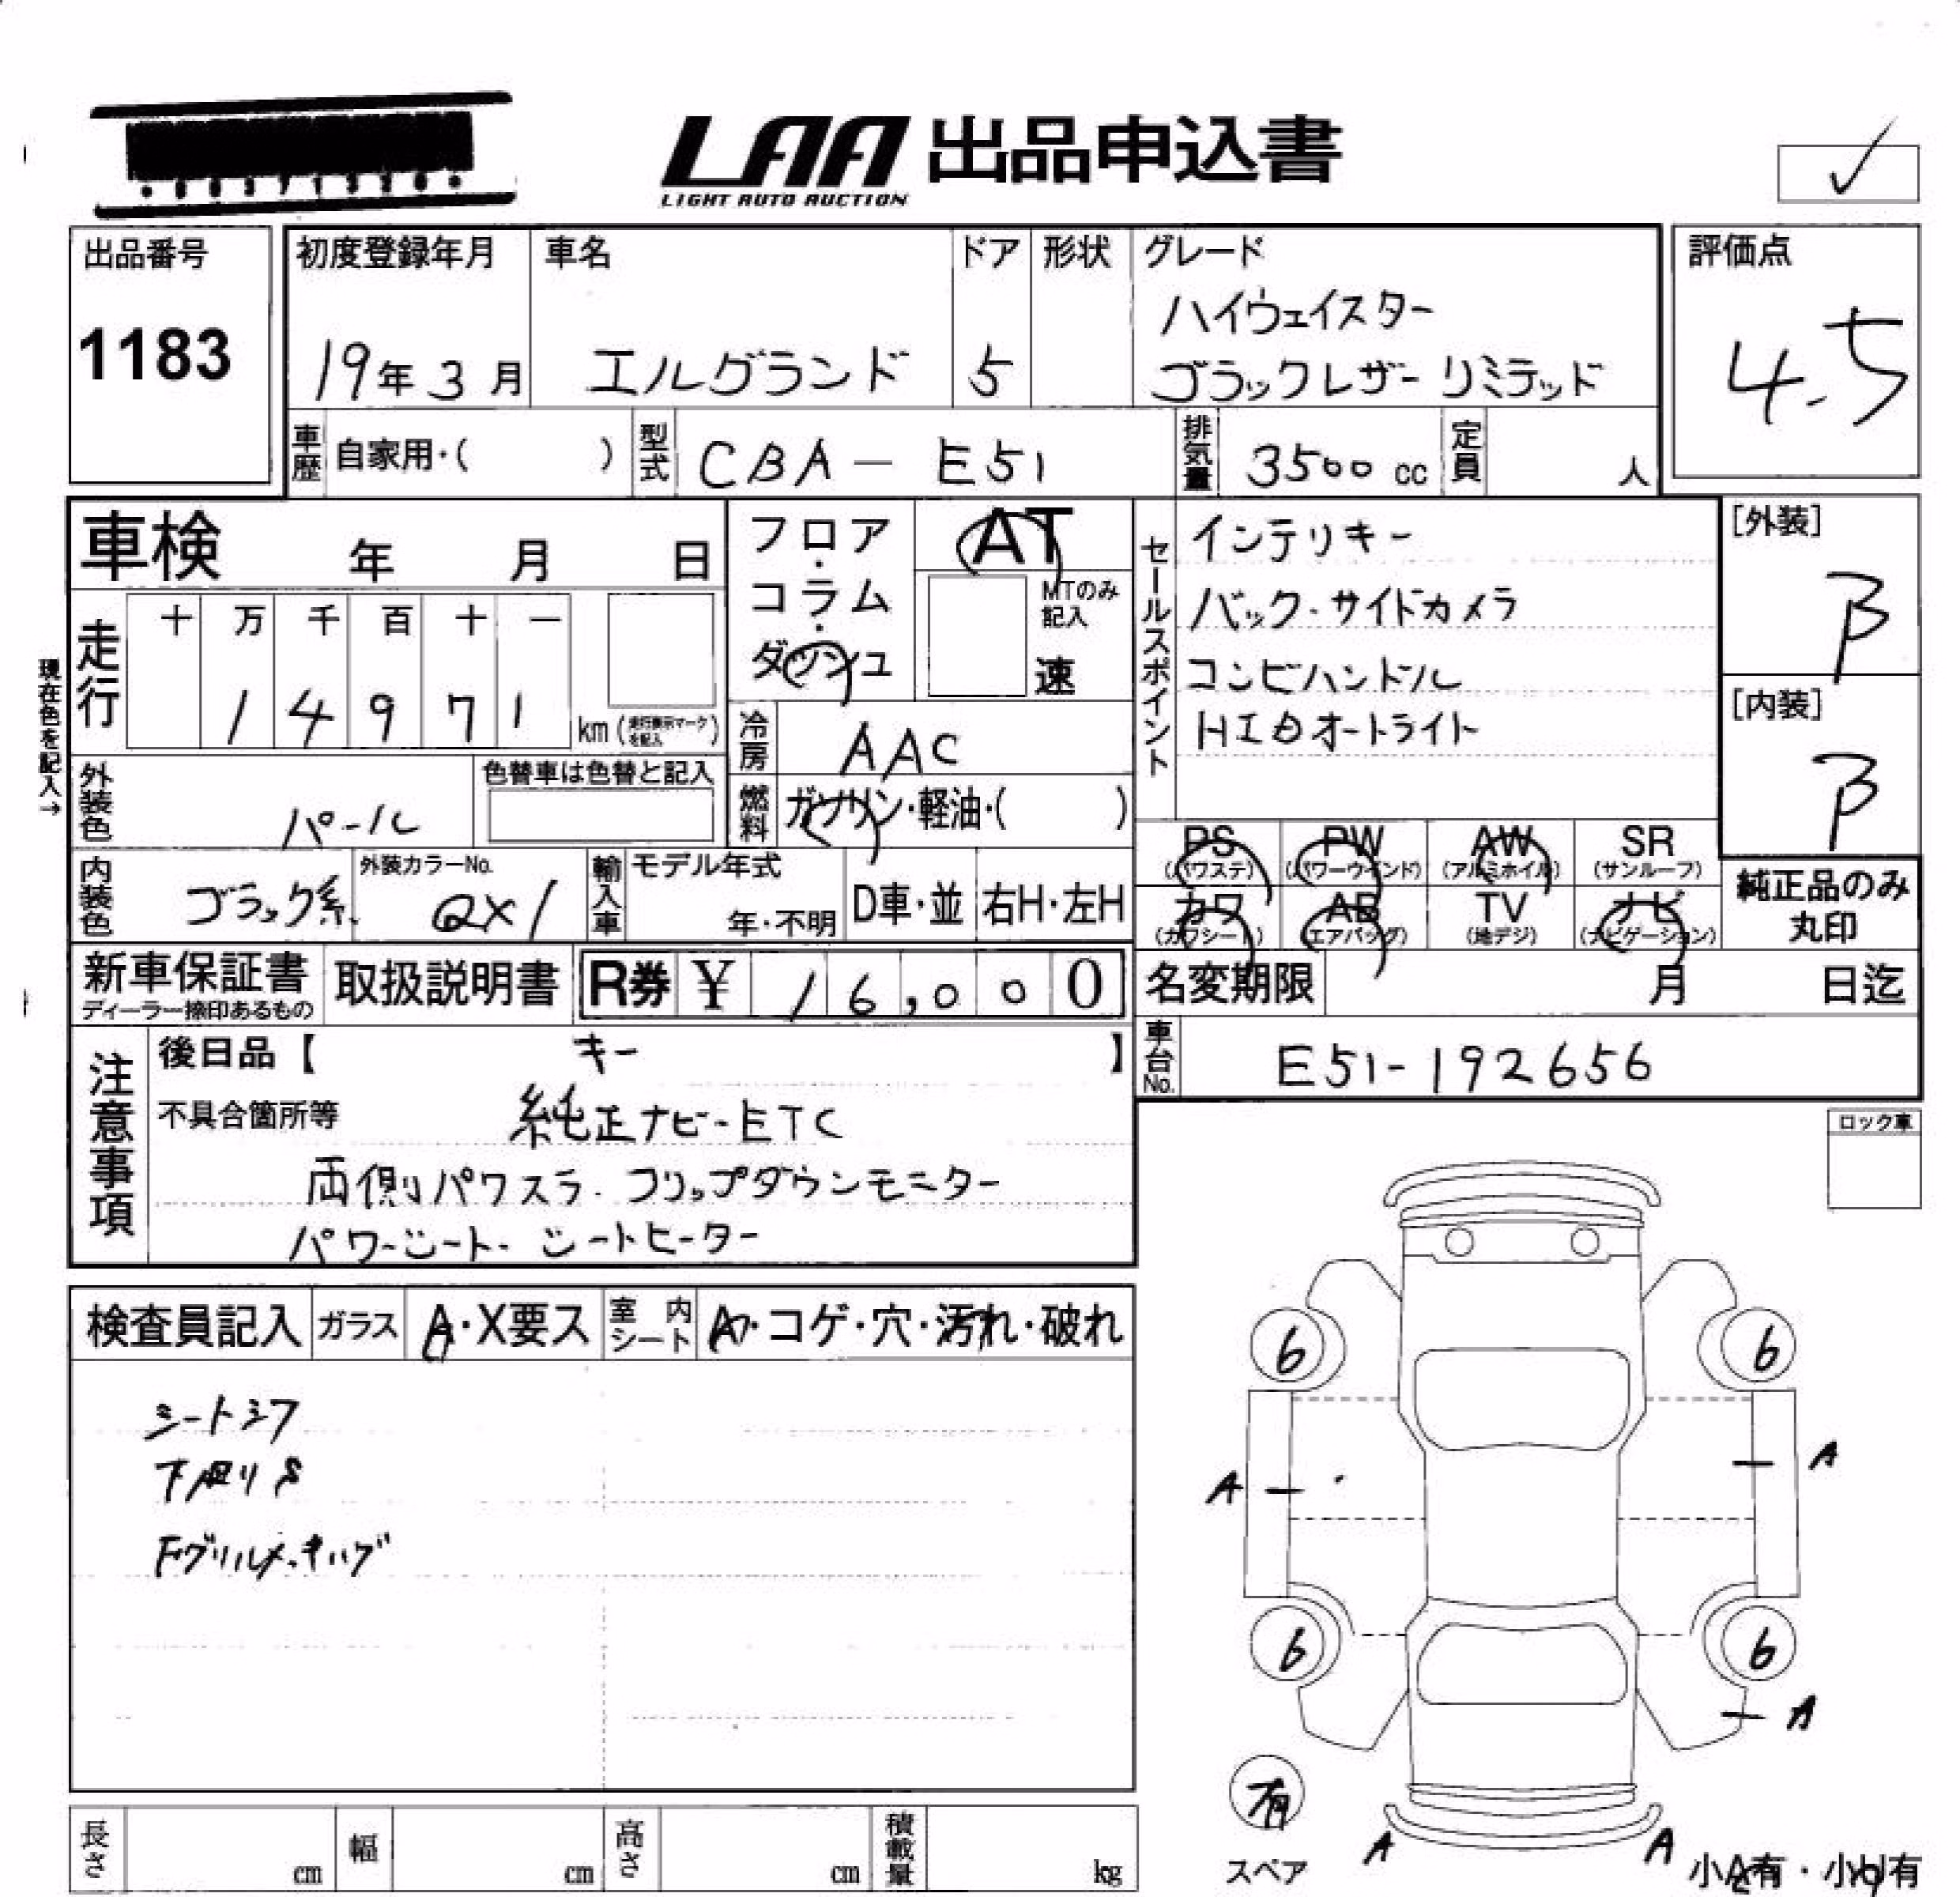 LAA 出品申込書
LIGHT AUTO AUCTION
出品番号
1183
初度登録年月
19年 3月
車名
エルグランド
ドア
5
形状
グレード
ハイウェイスター
ブラックレザーリミテッド
評価点
4.5
車歴 自家用・( )
型式 CBA-E51
排気量 3500 cc
定員 人
車検 年 月 日
現在色を記入→
走行
十 万 千 百 十 一
1 4 9 7 1
km (走行表示マークを記入)
フロア・コラム・ダッシュ
AT
MTのみ記入
速
冷房 AAC
燃料 ガソリン・軽油・( )
外装色 パール
色替車は色替と記入
内装色 ブラック系
外装カラーNo.
QX1
輸入車
モデル年式
年・不明
D車・並
右H・左H
セールスポイント
インテリキー
バック・サイドカメラ
コンビハンドル
HID オートライト
[外装]
B
[内装]
B
PS (パワステ)
PW (パワーウインド)
AW (アルミホイル)
SR (サンルーフ)
カワ (カワシート)
AB (エアバッグ)
TV (地デジ)
ナビ (ナビゲーション)
純正品のみ丸印
新車保証書
ディーラー捺印あるもの
取扱説明書
R券 ¥ 16,000
名変期限 月 日迄
車台No. E51-192656
注意事項
後日品【 キー 】
不具合箇所等
純正ナビ-ETC
両側パワスラ・フリップダウンモニター
パワーシート・シートヒーター
ロック車
検査員記入
ガラス A・X要ス
室内シート A・コゲ・穴・汚れ・破れ
シートシワ
下廻りS
FグリルメッキハゲA
6
6
A
A
6
6
A
有
スペア
A
A
小A有・小U有
長さ cm
幅 cm
高さ cm
積載量 kg